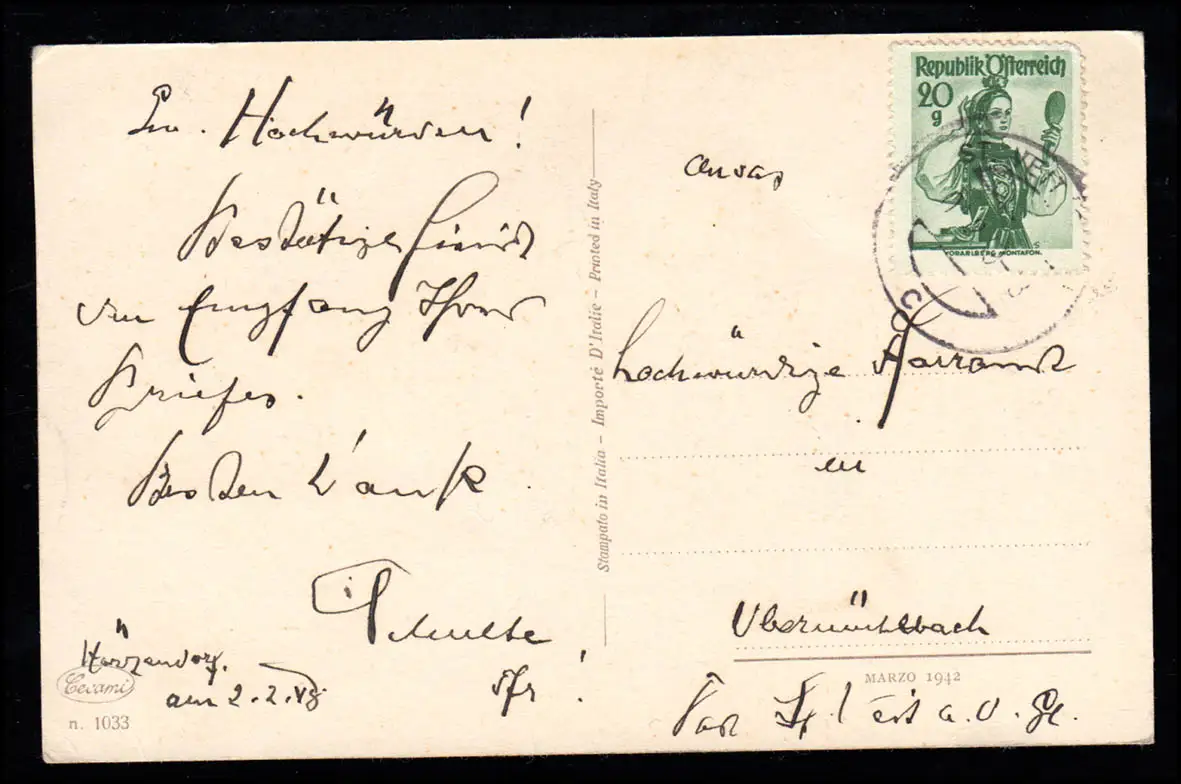 Ew. Hochwürden!
Bestätige hiermit
den Empfang Ihres
Briefes.
Besten Dank
Schulte
Pfr!
Hörzendorf.
am 2.2.48
Cecami
n. 1033
Stampato in Italia - Importé D'Italie - Printed in Italy
Republik Österreich
20
g
VORARLBERG MONTAFON.
An das
hochwürdige Pfarramt
in
Obermühlbach
MARZO 1942
Post St. Veit a. d. Gl.